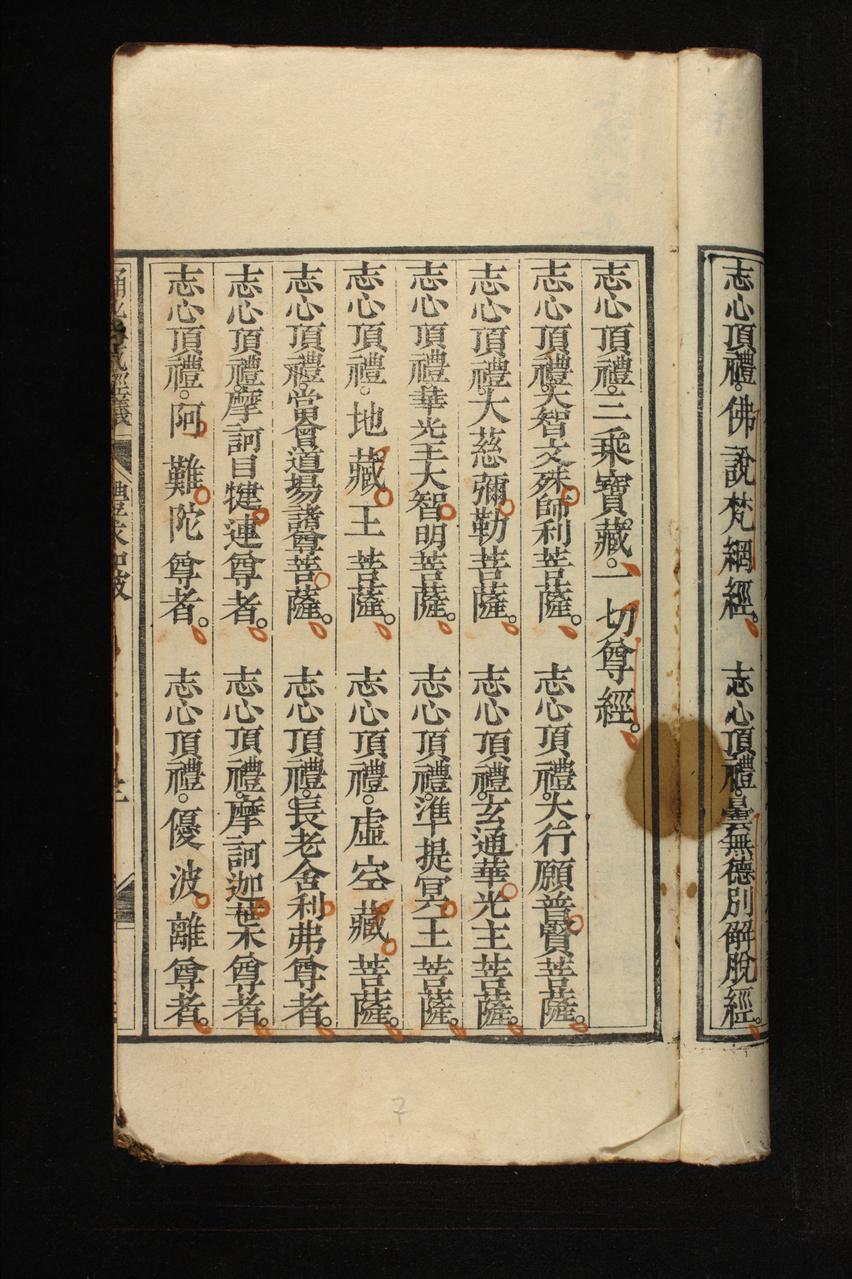 志心頂禮。佛說梵網經。　志心頂禮。曇無德別解脫經。
志心頂禮。三乘寶藏。一切尊經。
志心頂禮。大智文殊師利菩薩。　志心頂禮。大行願普賢菩薩。
志心頂禮大慈彌勒菩薩。　志心頂禮。玄通華光主菩薩。
志心頂禮華光王大智明菩薩。　志心頂禮。準提冥王菩薩。
志心頂禮。地藏王菩薩。　志心頂禮。虛空藏菩薩。
志心頂禮。當會道場諸尊菩薩。　志心頂禮。長老舍利弗尊者。
志心頂禮。摩訶目犍連尊者。　志心頂禮。摩訶迦葉尊者。
志心頂禮。阿難陀尊者。　志心頂禮。優波離尊者。
7